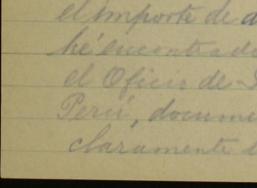 el importe de a
he encontrado
el Oficio de
Perú, docume
claramente